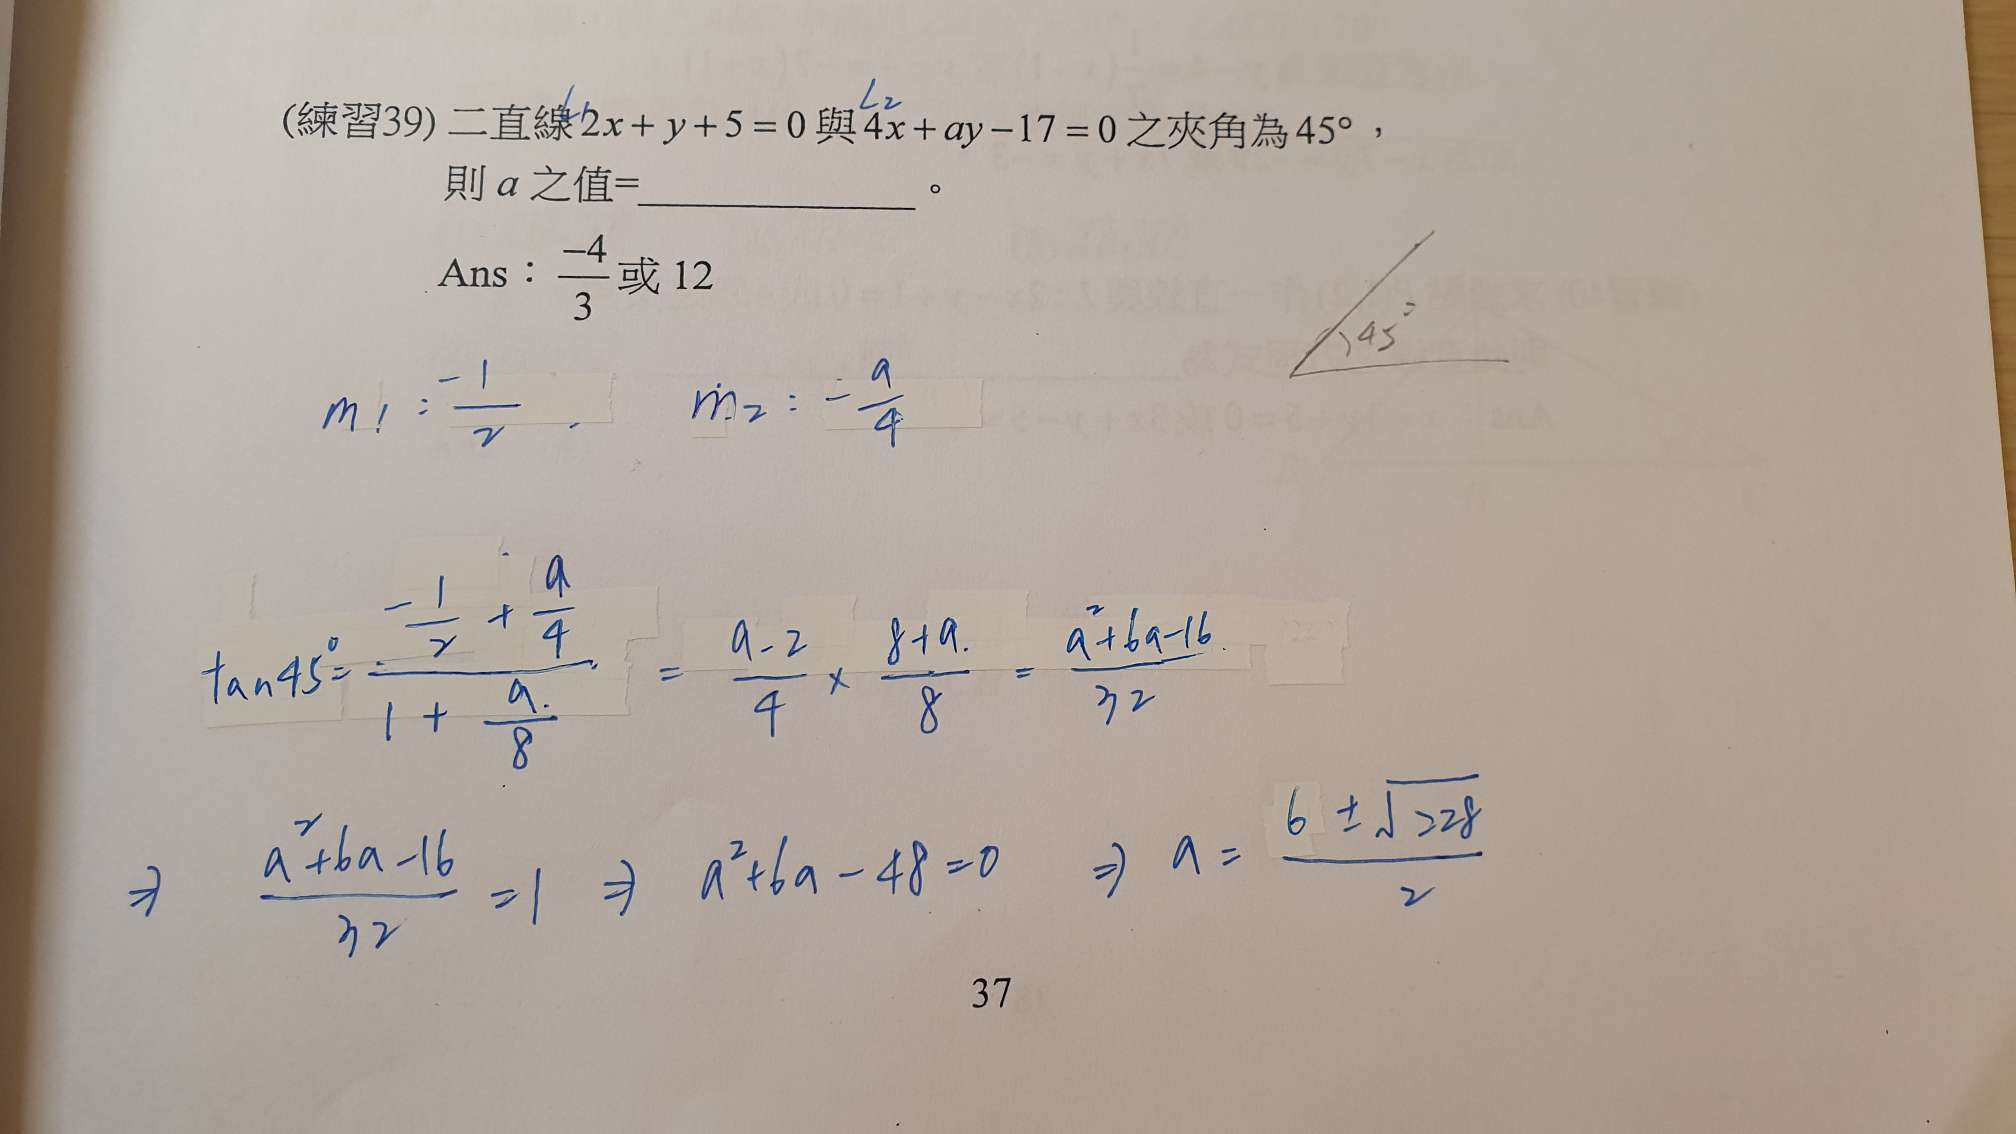 (練習39) 二直線 2x + y + 5 = 0 與 4x + ay − 17 = 0 之夾角為 45°，
L1 L2
則 a 之值=____________。
Ans： -4/3 或 12
45°
m1 : -1/2 . m2 : -a/4
tan45° = (-1/2 + a/4)/(1 + a/8) = (a-2)/4 × (8+a)/8 = (a²+6a-16)/32
⇒ (a²+6a-16)/32 = 1 ⇒ a²+6a-48=0 ⇒ a = (6 ± √228)/2
37